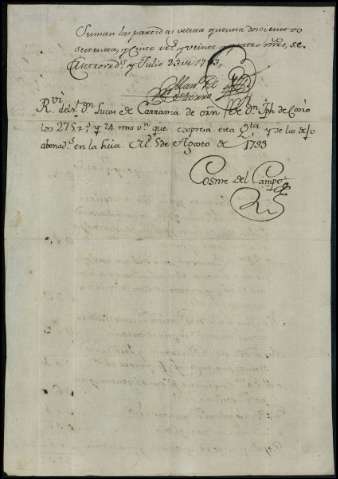 Suman las partidas de esta quenta doscientos
setenta, y cinco r.s v.n y veinte y quatro mrs, &c.
y Julio 23 de 1793,
Man.l de
R.vi del S.r D.n Lucas de Carranza de orn. de D.n Jph. de
los 275 r.s y 24 mrs v.n que expresa esta q.ta y de los dejo
abonad.s en la mia R.l 5 de Agosto de 1793
Cosme del Campo